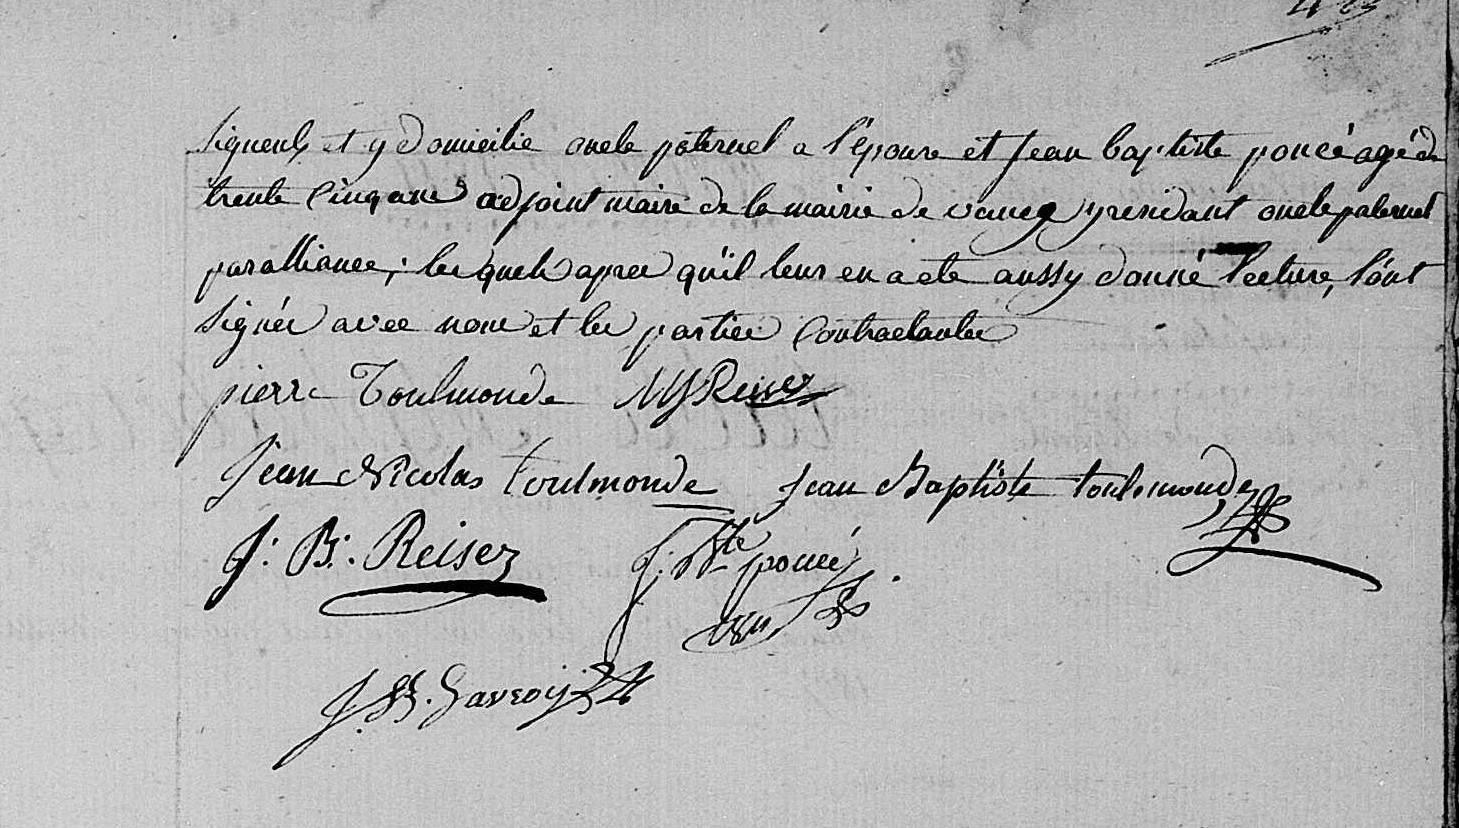 signeulx et y domicilie oncle paternel a l'épouse et jean baptiste poncé agé de
trente cinq ans adjoint maire de la mairie de vance y residant oncle paternel
par alliance; les quels apres qu'il leur en a ete aussy donné lecture, l'ont
signés avec nous et les parties contractantes
pierre Toulmonde MJ Reiser
Jean Nicolas toulmonde jean Baptiste toulemonde
J: B: Reiser J: Bte poncé
J. B. Gavroy